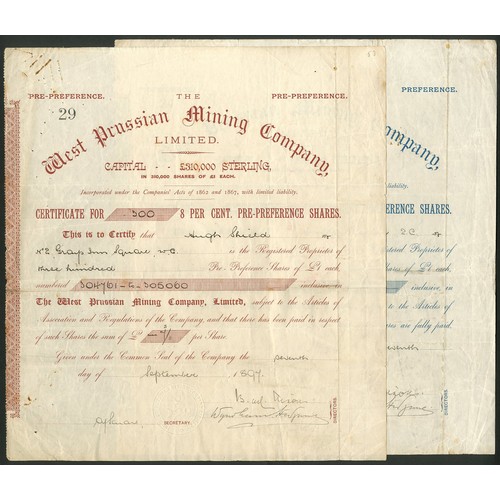 PRE-PREFERENCE. THE PRE-PREFERENCE.
29
West Prussian Mining Company,
LIMITED.
CAPITAL - - £310,000 STERLING,
IN 310,000 SHARES OF £1 EACH.
Incorporated under the Companies' Acts of 1862 and 1867, with limited liability.
CERTIFICATE FOR 300 8 PER CENT. PRE-PREFERENCE SHARES.
This is to Certify that Hugh Shield of
Square W.C. is the Registered Proprietor of
three hundred Pre-Preference Shares of £1 each,
numbered 304761 to 305060 inclusive in
The West Prussian Mining Company, Limited, subject to the Articles of
Association and Regulations of the Company, and that there has been paid in respect
of such Shares the sum of £ per Share
Given under the Common Seal of the Company the seventh
day of September 1897
DIRECTORS.
SECRETARY.
PREFERENCE.
Company,
liability.
PREFERENCE SHARES.
of
Registered Proprietor of
Shares of £1 each,
inclusive, in
to the Articles of
Shares are fully paid.
seventh
DIRECTORS.